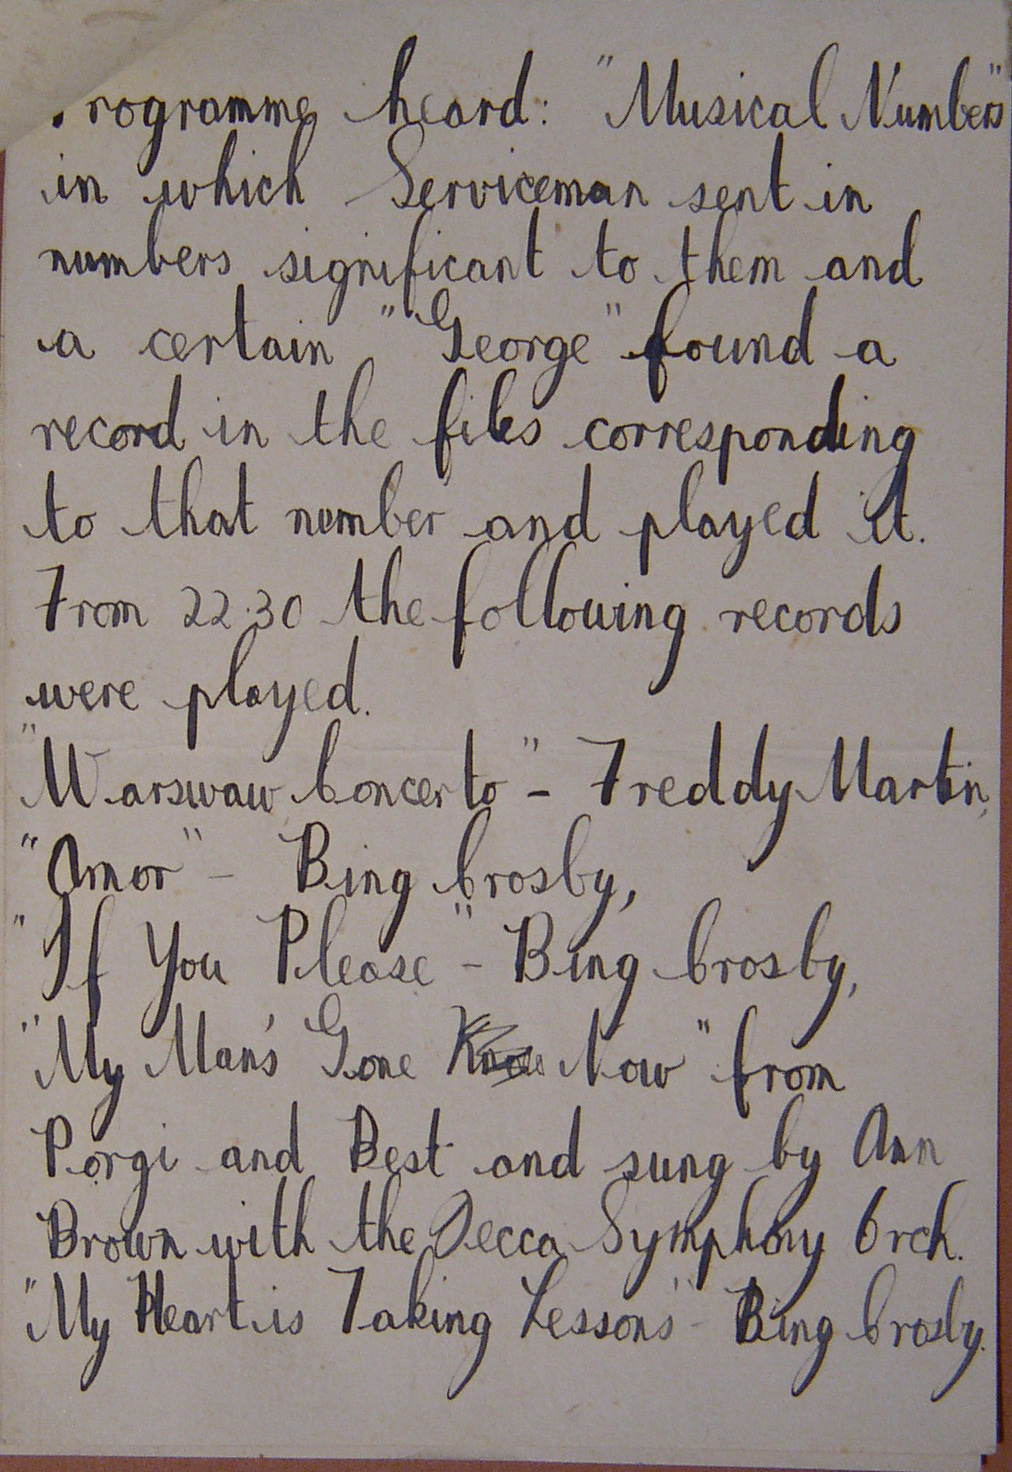 Programme heard: "Musical Numbers"
in which Serviceman sent in
numbers significant to them and
a certain "George" found a
record in the files corresponding
to that number and played it.
From 22.30 the following records
were played.
"Warswaw Concerto" - Freddy Martin,
"Amor" - Bing Crosby,
"If You Please" - Bing Crosby,
"My Man's Gone Know Now" from
Porgi and Best and sung by Ann
Brown with the Decca Symphony Orch.
"My Heart is Taking Lessons" Bing Crosby.